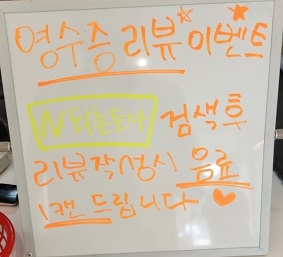 영수증 리뷰 이벤트
N 최순도이 검색후
리뷰작성시 음료
1캔 드립니다